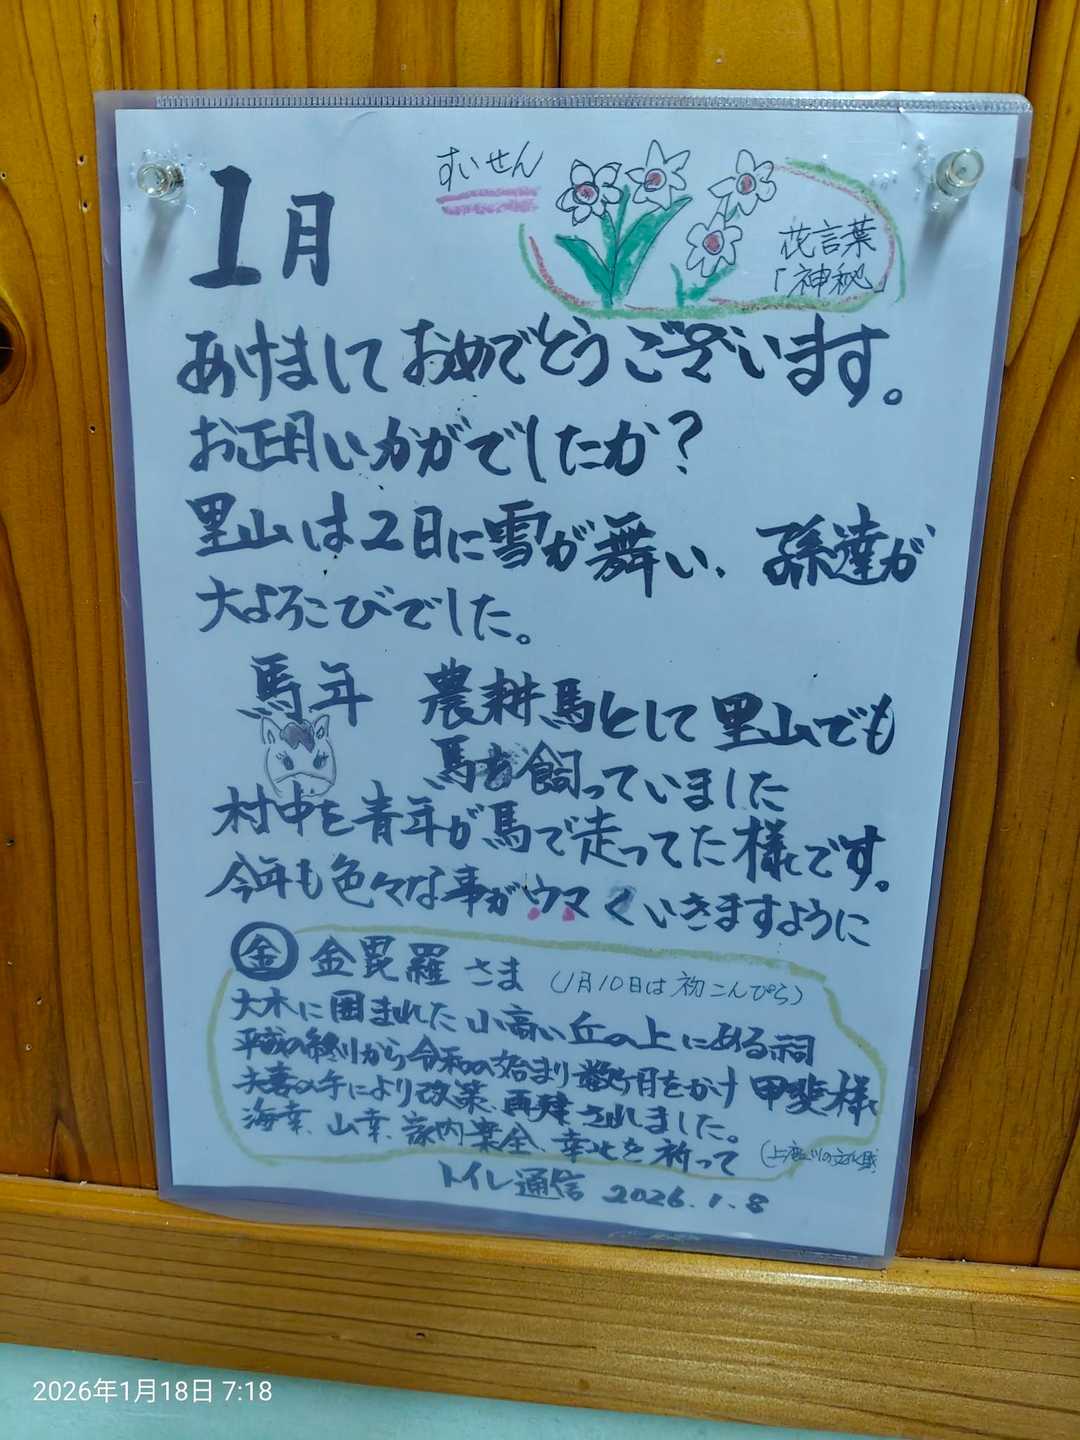 1月
すいせん
花言葉
「神秘」
あけましておめでとうございます。
お正月いかがでしたか？
里山は2日に雪が舞い、孫達が
大よろこびでした。
馬年 農耕馬として里山でも
馬を飼っていました
村中を青年が馬で走ってた様です。
今年も色々な事がウマくいきますように
金 金毘羅さま (1月10日は初こんぴら)
大木に囲まれた小高い丘の上にある祠
平成の終りから令和の始まり数ヶ月をかけ甲斐様
夫妻の手により改築、再建されました。
海幸、山幸、家内安全、幸せを祈って
トイレ通信 2026.1.8
2026年1月18日 7:18